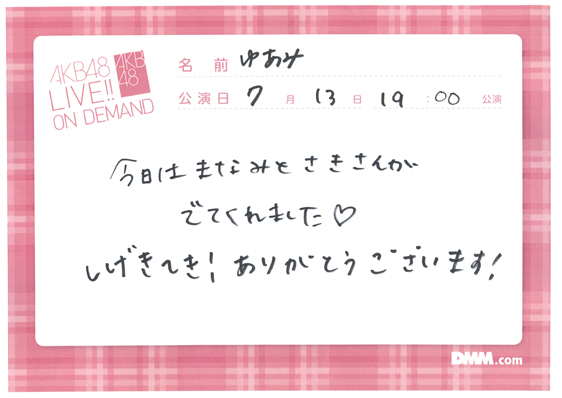 AKB48
LIVE!!
ON DEMAND
AKB
48
名前 ゆあみ
公演日 7月13日 19:00公演
今日は まなみと さきさんが
でてくれました♡
しげきてき! ありがとうございます!
DMM.com